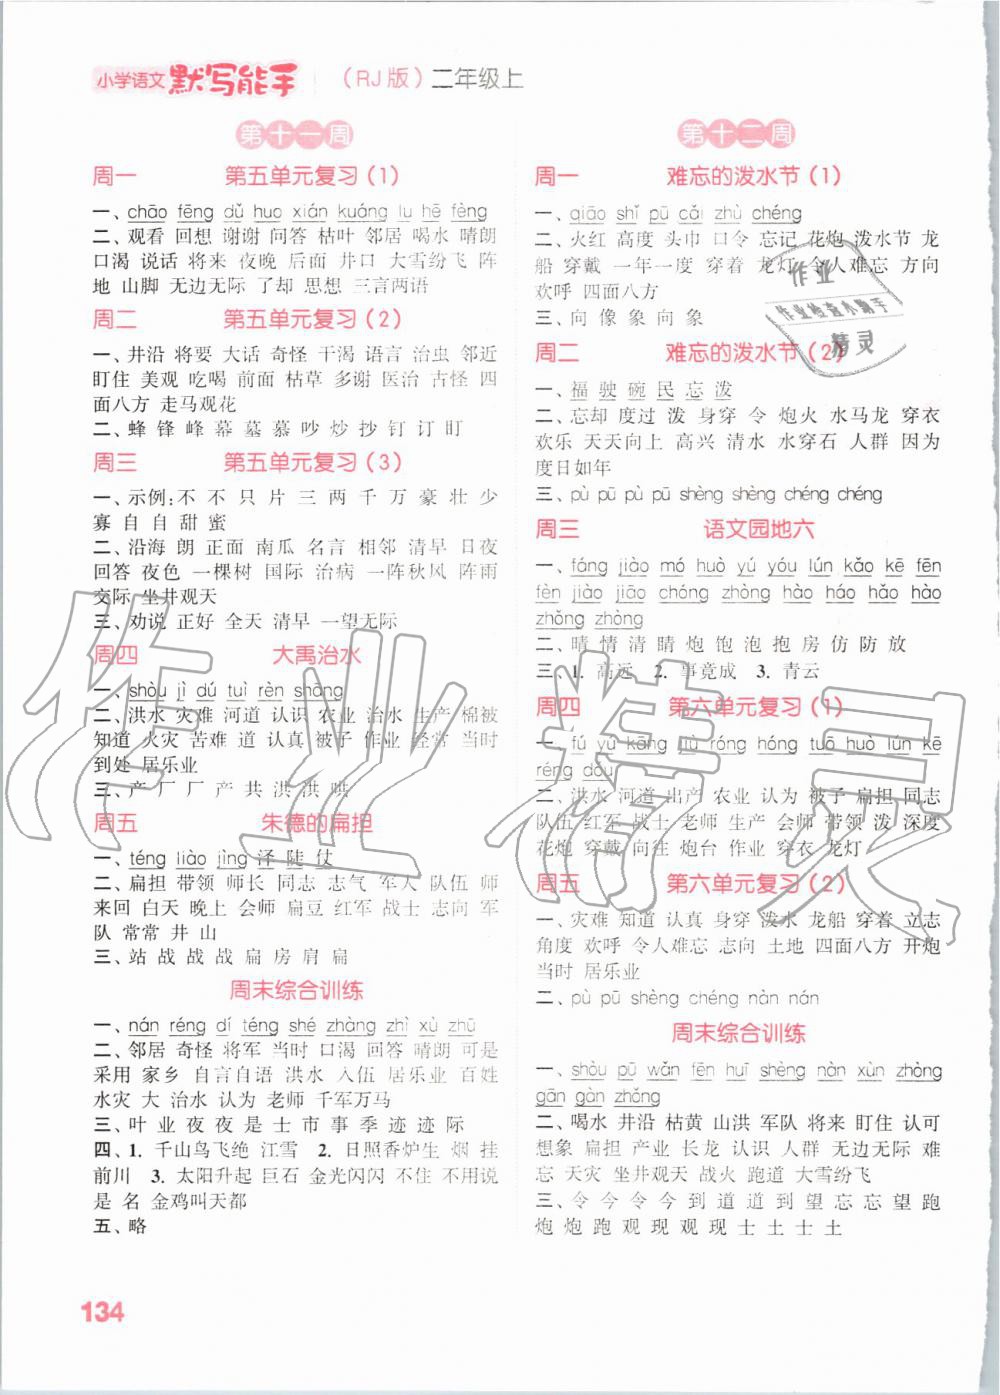 小学语文 默写能手 （RJ版）二年级上
第十一周
周一 第五单元复习（1）
一、chāo fēng dǔ huo xián kuáng lu hē fèng
二、观看 回想 谢谢 问答 枯叶 邻居 喝水 晴朗
口渴 说话 将来 夜晚 后面 井口 大雪纷飞 阵
地 山脚 无边无际 了却 思想 三言两语
周二 第五单元复习（2）
一、井沿 将要 大话 奇怪 干渴 语言 治虫 邻近
盯住 美观 吃喝 前面 枯草 多谢 医治 古怪 四
面八方 走马观花
二、蜂 锋 峰 幕 墓 慕 吵 炒 抄 钉 订 盯
周三 第五单元复习（3）
一、示例：不 不 只 片 三 两 千 万 豪 壮 少
寡 自 自 甜 蜜
二、沿海 朗 正面 南瓜 名言 相邻 清早 日夜
回答 夜色 一棵树 国际 治病 一阵秋风 阵雨
交际 坐井观天
三、劝说 正好 全天 清早 一望无际
周四 大禹治水
一、shòu jì dú tuì rèn shāng
二、洪水 灾难 河道 认识 农业 治水 生产 棉被
知道 火灾 苦难 道 认真 被子 作业 经常 当时
到处 居乐业
三、产 厂 厂 产 共 洪 洪 哄
周五 朱德的扁担
一、téng liào jìng 泽 陡 仗
二、扁担 带领 师长 同志 志气 军人 队伍 师
来回 白天 晚上 会师 扁豆 红军 战士 志向 军
队 常常 井 山
三、站 战 战 战 扁 房 肩 扁
周末综合训练
一、nán réng dí téng shé zhàng zhì xù zhū
二、邻居 奇怪 将军 当时 口渴 回答 晴朗 可是
采用 家乡 自言自语 洪水 入伍 居乐业 百姓
水灾 大 治水 认为 老师 千军万马
三、叶 业 夜 夜 是 士 市 事 季 迹 迹 际
四、1. 千山鸟飞绝 江雪 2. 日照香炉生 烟 挂
前川 3. 太阳升起 巨石 金光闪闪 不住 不用说
是 名 金鸡叫天都
五、略
第十二周
周一 难忘的泼水节（1）
一、qiāo shǐ pū cǎi zhù chéng
二、火红 高度 头巾 口令 忘记 花炮 泼水节 龙
船 穿戴 一年一度 穿着 龙灯 令人难忘 方向
欢呼 四面八方
三、向 像 象 向 象
周二 难忘的泼水节（2）
一、福 驶 碗 民 忘 泼
二、忘却 度过 泼 身穿 令 炮火 水马龙 穿衣
欢乐 天天向上 高兴 清水 水穿石 人群 因为
度日如年
三、pù pū pū pù shèng shèng chéng chéng
周三 语文园地六
一、fáng jiào mó huò yú yóu lún kǎo kē fēn
fèn jiào jiāo chóng zhòng hào háo hǎo hào
zhǒng zhòng
二、晴 情 清 睛 炮 饱 泡 抱 房 仿 防 放
三、1. 高远 2. 事竟成 3. 青云
周四 第六单元复习（1）
一、fú yù kāng jù róng hóng tuō huò lún kē
réng dòu
二、洪水 河道 出产 农业 认为 被子 扁担 同志
队伍 红军 战士 老师 生产 会师 带领 泼 深度
花炮 穿戴 向往 炮台 作业 穿衣 龙灯
周五 第六单元复习（2）
一、灾难 知道 认真 身穿 泼水 龙船 穿着 立志
角度 欢呼 令人难忘 志向 土地 四面八方 开炮
当时 居乐业
二、pù pū shèng chéng nàn nán
周末综合训练
一、shòu pū wǎn fēn huī shèng nàn xùn zhòng
gān gàn zhǒng
二、喝水 井沿 枯黄 山洪 军队 将来 盯住 认可
想象 扁担 产业 长龙 认识 人群 无边无际 难
忘 天灾 坐井观天 战火 跑道 大雪纷飞
三、令 今 令 今 到 道 道 到 望 忘 忘 望 跑
炮 炮 跑 观 现 观 现 士 土 士 土
作业
作业检查小助手
精灵
作业精灵
134